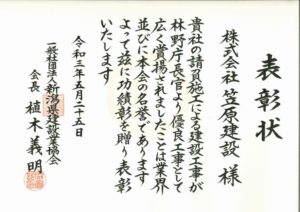 表彰状
株式会社 笠原建設 様
貴社の請負施工による建設工事が
林野庁長官より優良工事として
広く賞揚されましたことは業界
並びに本会の名誉であります
よって茲に功績彰を贈り表彰
いたします
令和三年五月二十五日
一般社団法人新潟県建設業協会
会長 植木義明